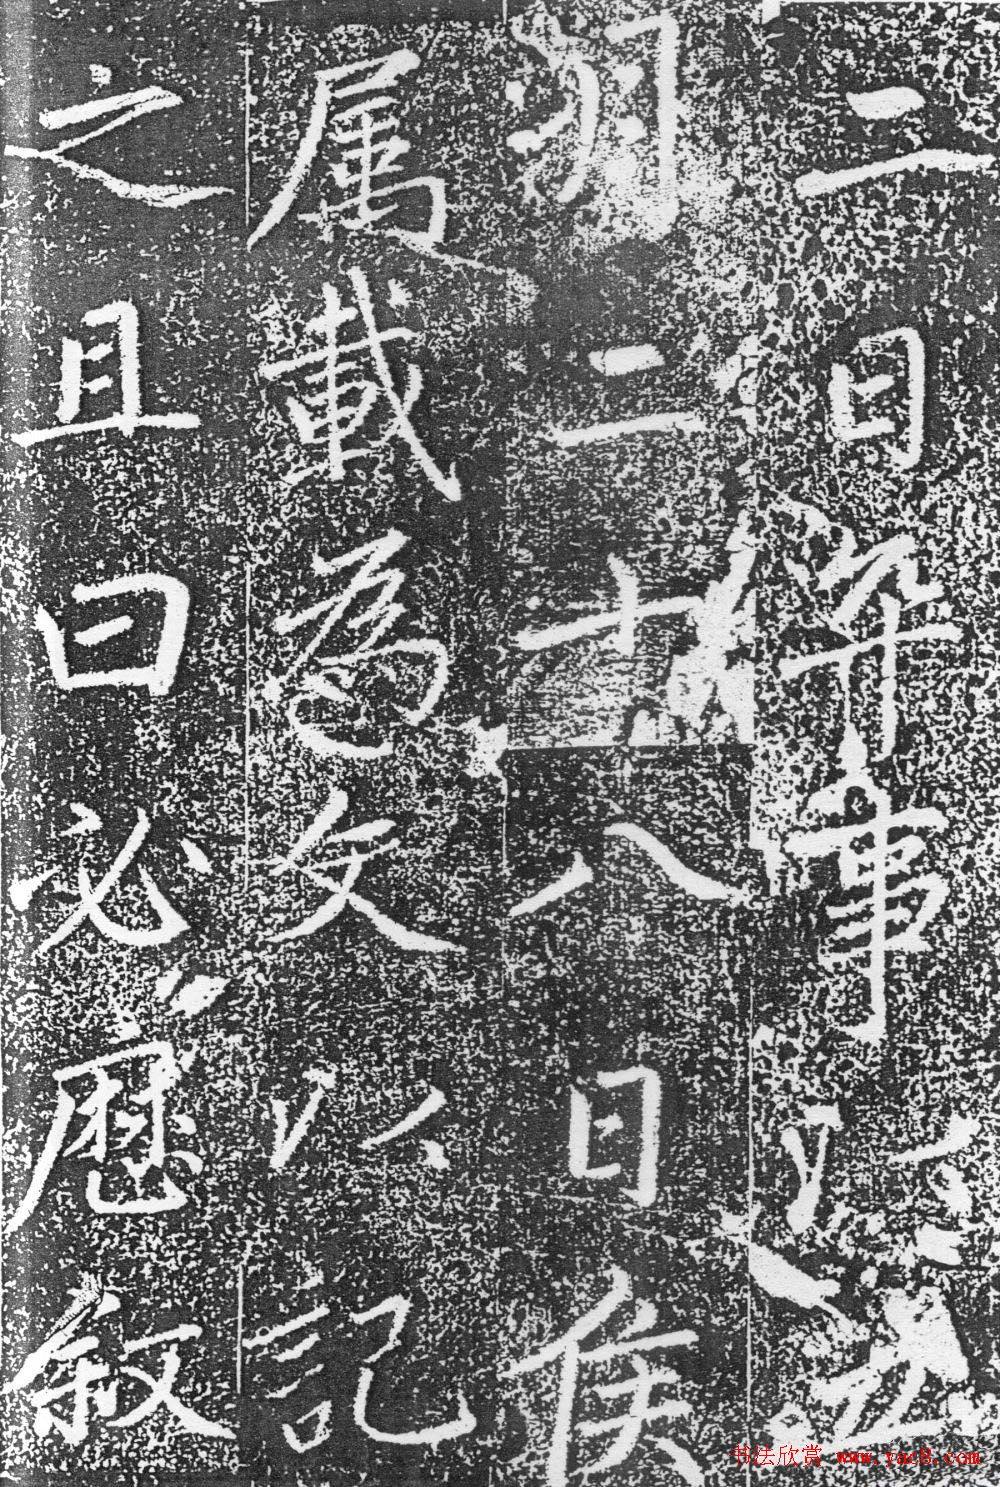 二日卒事以五
朔二十八日侯
属載為文以記
之且曰必歷叙
书法欣赏 www.yac8.com